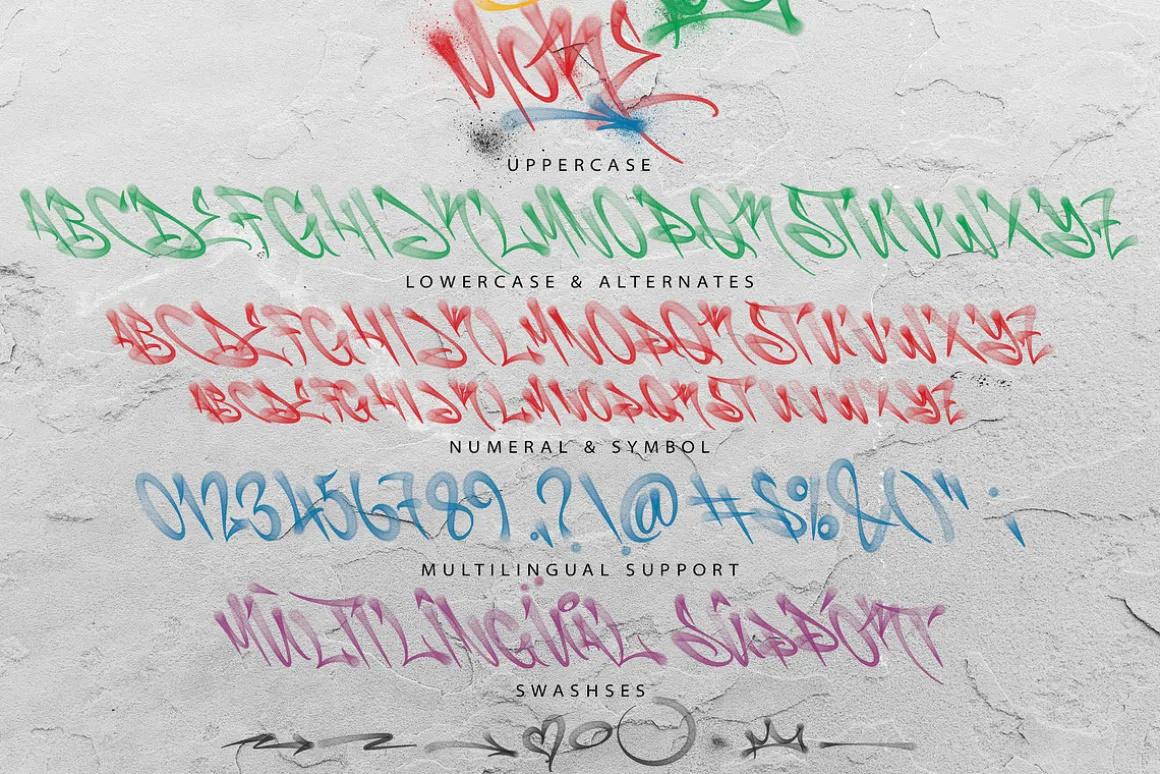 MORE
UPPERCASE
ABCDEFGHIJKLMNOPQRSTUVWXYZ
LOWERCASE & ALTERNATES
ABCDEFGHIJKLMNOPQRSTUVWXYZ
ABCDEFGHIJKLMNOPQRSTUVWXYZ
NUMERAL & SYMBOL
0123456789.,?!\@#$%&()"':;
MULTILINGUAL SUPPORT
MÛLTÍLÎNGÜÅL SÛPPÓRT
SWASHSES